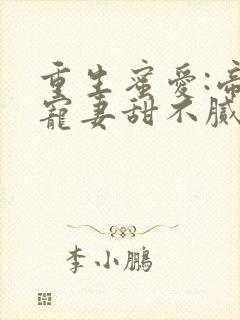 重生蜜爱:帝
宠妻甜不腻
李小鹏